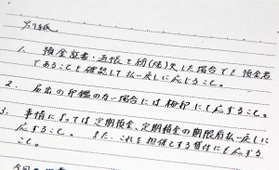 別紙
1. 預金証書・通帳を紛(焼)失した場合でも預金者
であることを確認して払い戻しに応ずること。
2. 届出の印鑑のない場合には拇印にて応ずること。
3. 事情によっては定期預金、定期積金の期限前払い戻しに
応ずること。また、これを担保とする貸付にも応ずる
こと。